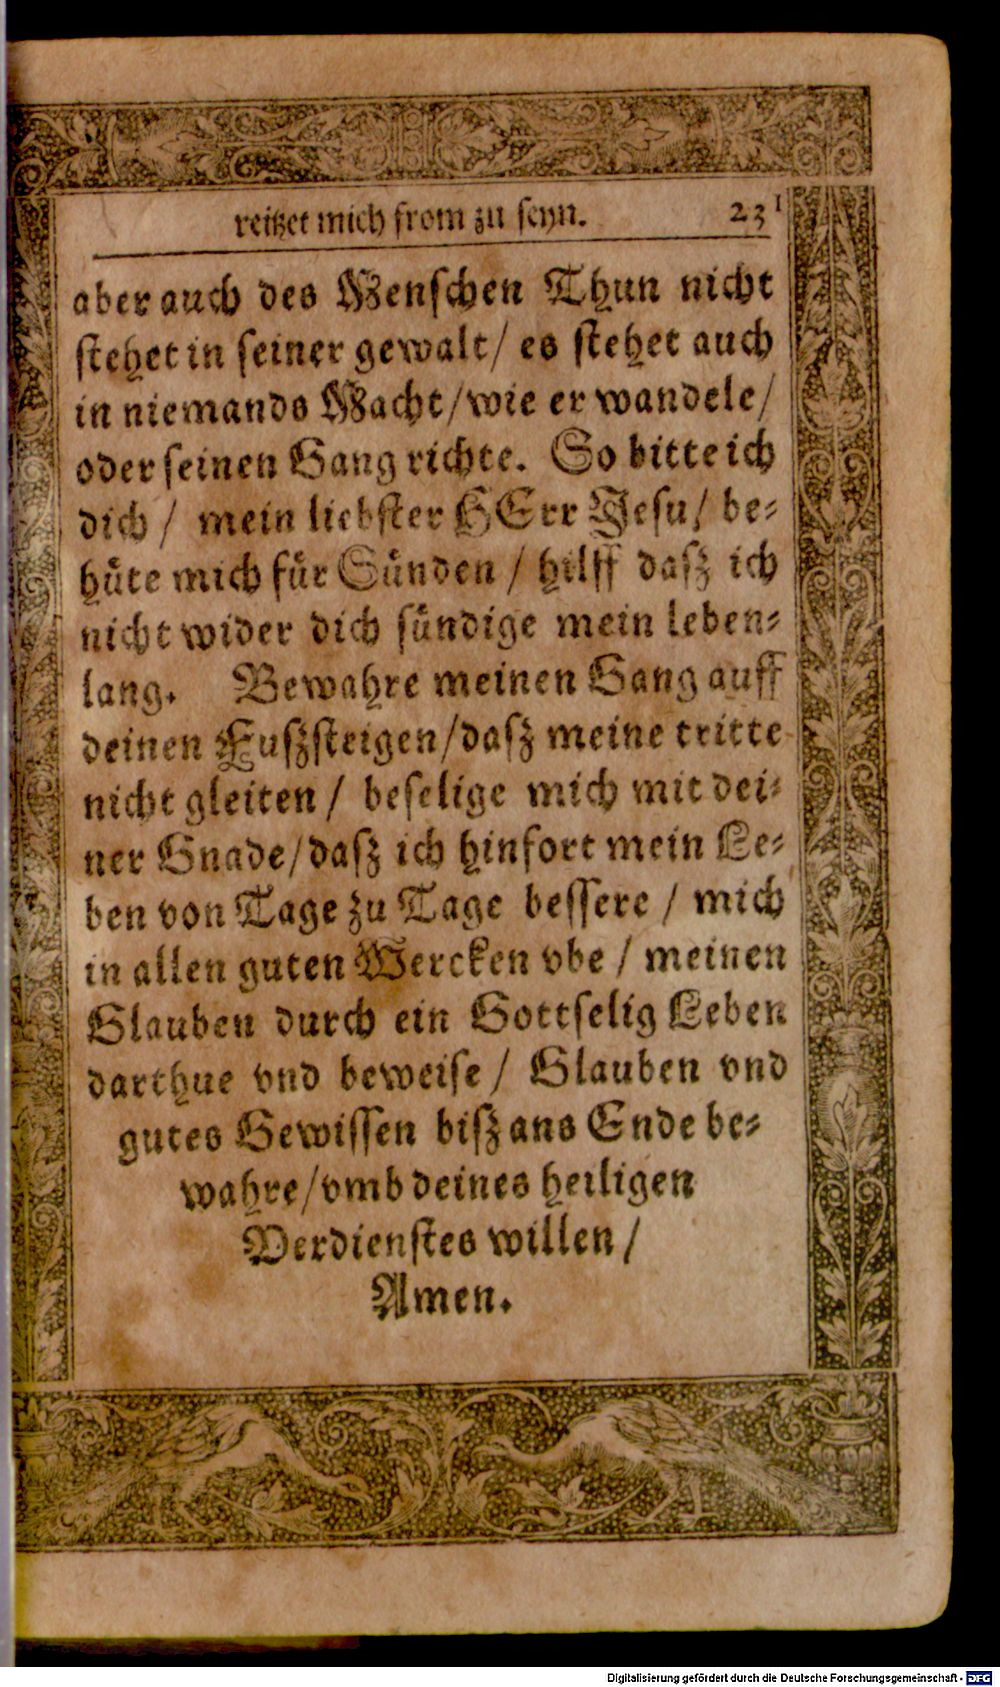 reitzet mich from zu seyn. 231
aber auch des Menschen Thun nicht
stehet in seiner gewalt/ es stehet auch
in niemands Macht/wie er wandele/
oder seinen Gang richte. So bitte ich
dich / mein liebster HErr Jesu/ be-
hüte mich für Sünden / hilff dasz ich
nicht wider dich sündige mein leben-
lang. Bewahre meinen Gang auff
deinen Fuszsteigen/dasz meine tritte
nicht gleiten / beselige mich mit dei-
ner Gnade/dasz ich hinfort mein Le-
ben von Tage zu Tage bessere / mich
in allen guten Wercken vbe / meinen
Glauben durch ein Gottselig Leben
darthue vnd beweise / Glauben vnd
gutes Gewissen bisz ans Ende be-
wahre/vmb deines heiligen
Verdienstes willen /
Amen.
Digitalisierung gefördert durch die Deutsche Forschungsgemeinschaft - DFG